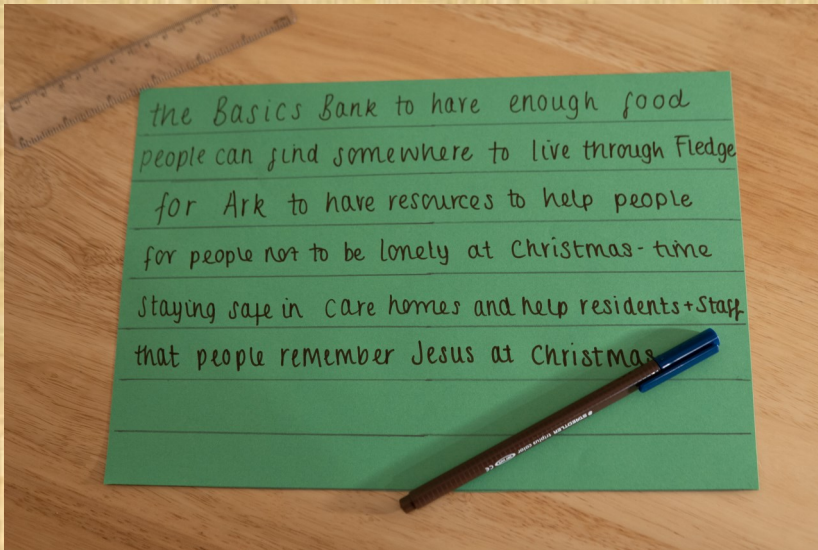 the Basics Bank to have enough food
people can find somewhere to live through Fledge
for Ark to have resources to help people
for people not to be lonely at Christmas-time
staying safe in care homes and help residents + staff
that people remember Jesus at Christmas
STAEDTLER triplus color